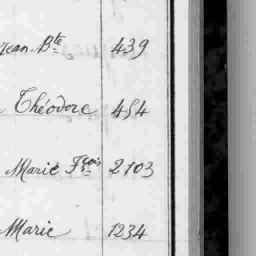 Jean Bte 439
Théodore 454
Marie Fçois 2103
Marie 1234